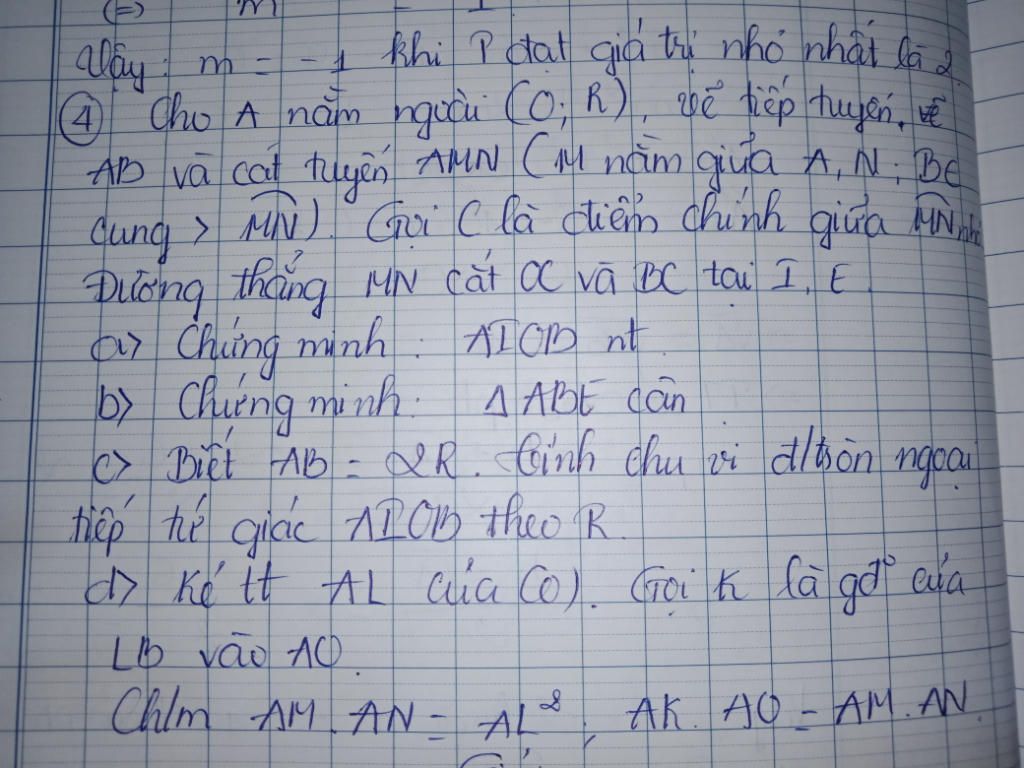 (=) m
Vậy: m = -1 khi P đạt giá trị nhỏ nhất là 2
④ Cho A nằm ngoài (O; R), vẽ tiếp tuyến, vẽ
AB và cát tuyến AMN (M nằm giữa A, N; BC
cung > MN). Gọi C là điểm chính giữa MN nhỏ
Đường thẳng MN cắt OC và BC tại I, E
a> Chứng minh: AIOB nt
b> Chứng minh: Δ ABE cân
c> Biết AB = 2R. tính chu vi đ/tròn ngoại
tiếp tứ giác AIOB theo R.
d> Kẻ tt AL của (O). Gọi K là gđ° của
LB vào AO
Ch/m AM.AN = AL², AK.AO = AM.AN.